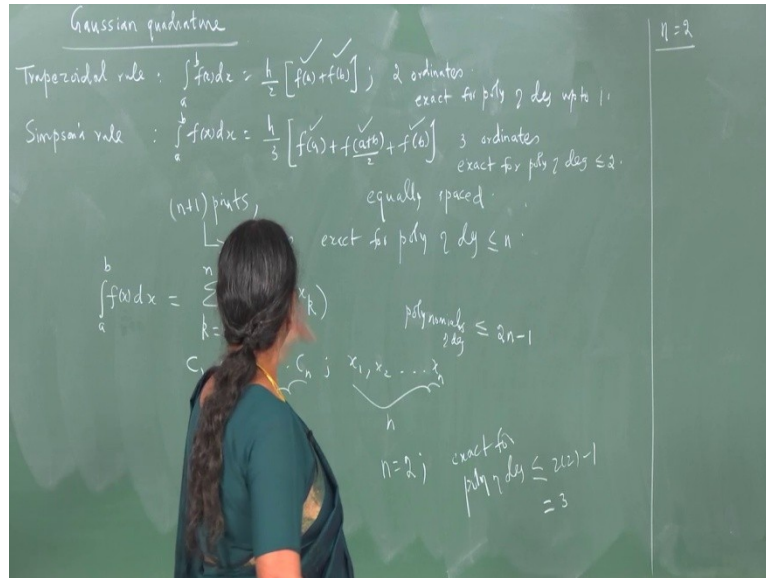 Gaussian quadrature
Trapezoidal rule : ∫_a^b f(x)dx = h/2 [f(a) + f(b)] ; 2 ordinates
exact for poly of deg upto 1.
Simpson's rule : ∫_a^b f(x)dx = h/3 [f(a) + f(a+b)/2 + f(b)] 3 ordinates
exact for poly of deg ≤ 2.
(n+1) points, equally spaced.
exact for poly of deg ≤ n.
∫_a^b f(x)dx = Σ_{k=}^n x_k)
polynomials of deg ≤ 2n-1
C_n ; x_1, x_2 ... x_n
n
n=2 ; exact for
poly of deg ≤ 2(2)-1
= 3
n=2